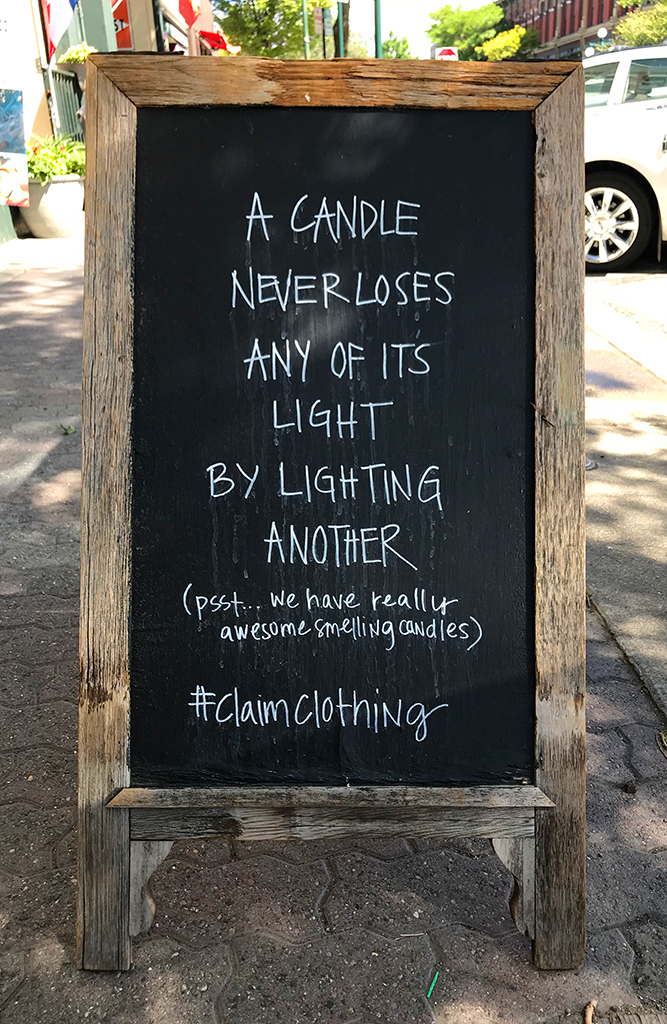 A CANDLE
NEVER LOSES
ANY OF ITS
LIGHT
BY LIGHTING
ANOTHER
(psst... we have really
awesome smelling candles)
#claimclothing